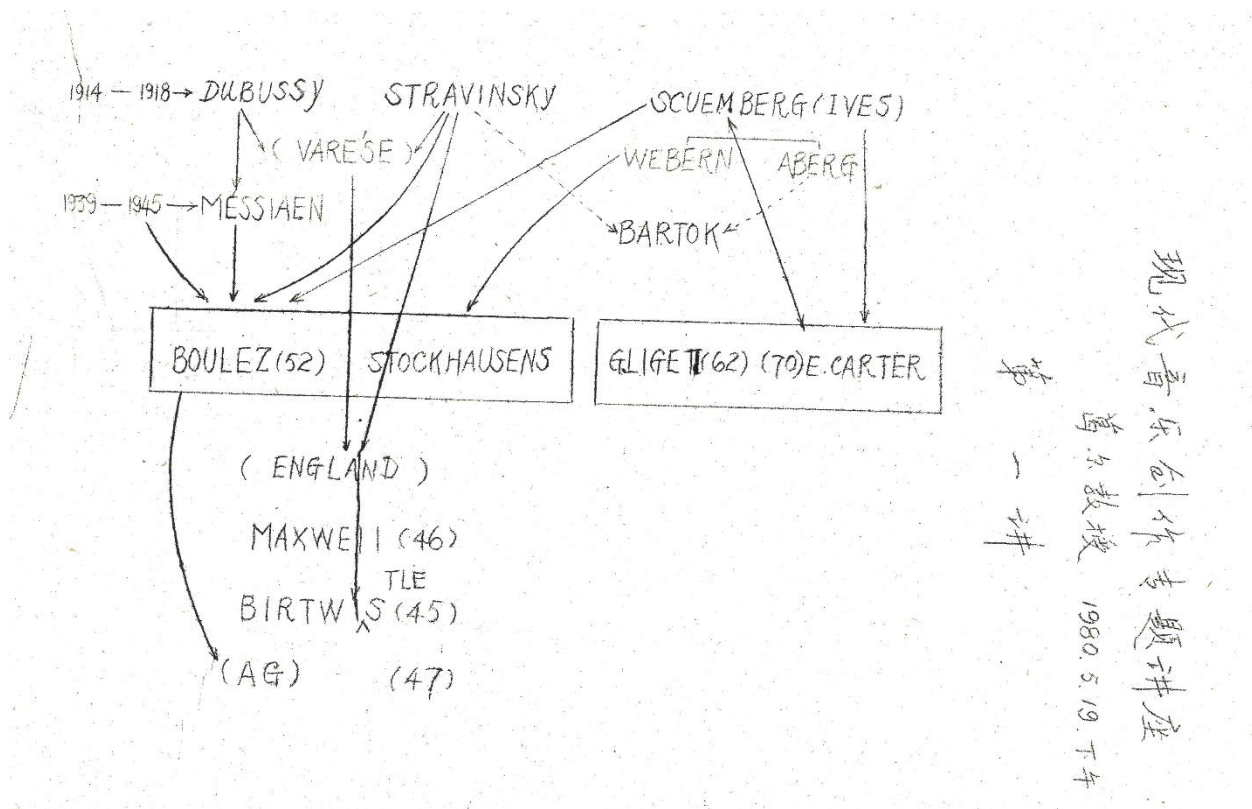 1914 — 1918 → DUBUSSY STRAVINSKY SCUEMBERG (IVES)
( VARE'SE ) WEBERN ABERG
1939 — 1945 → MESSIAEN
BARTOK
BOULEZ (52) STOCKHAUSENS GLIGETI (62) (70) E. CARTER
( ENGLAND )
MAXWELL (46)
TLE
BIRTWIS (45)
(AG) (47)
现代音乐创作专题讲座
葛尔教授 1980.5.19.下午
第一讲